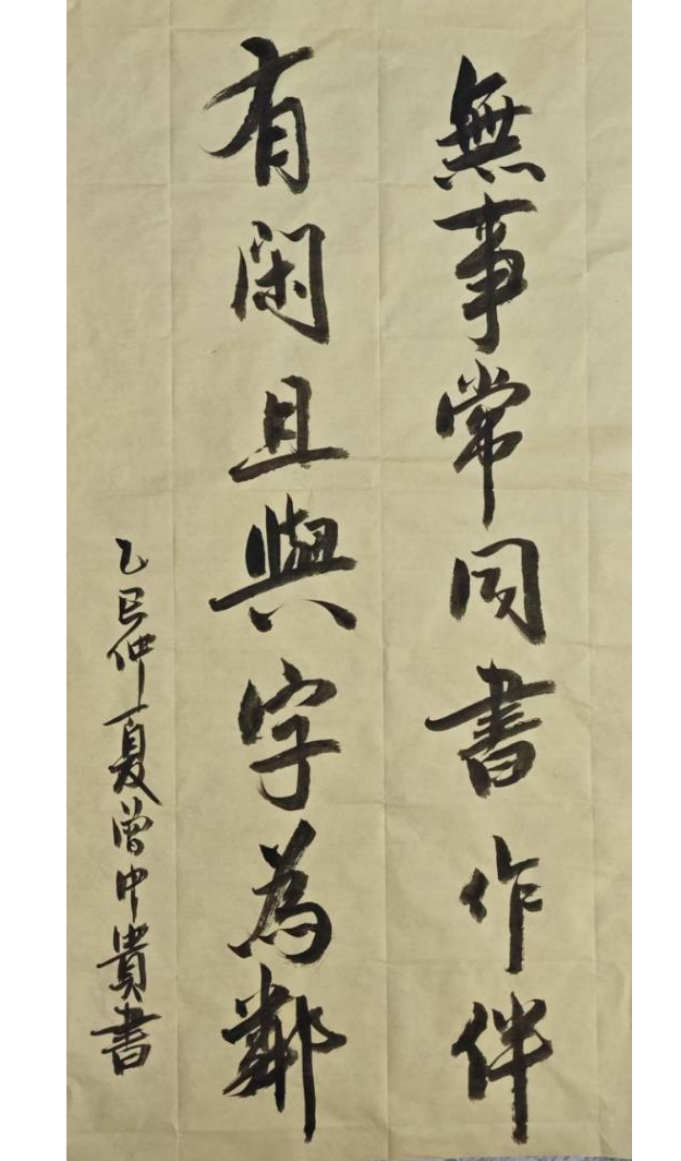 無事常同書作伴
有閑且與字為鄰
乙巳仲夏曾中貴書